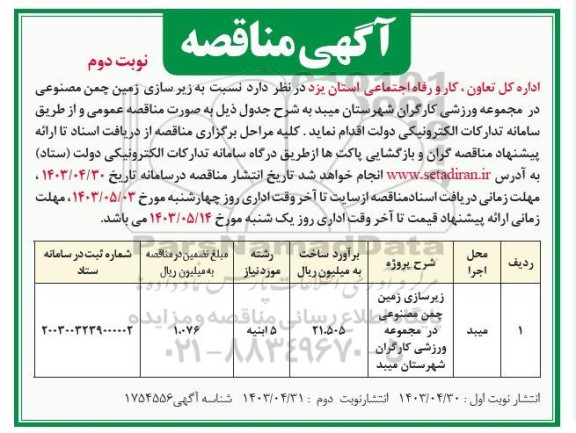 آگهی مناقصه
نوبت دوم
اداره کل تعاون ، کار و رفاه اجتماعی استان یزد در نظر دارد نسبت به زیر سازی زمین چمن مصنوعی
در مجموعه ورزشی کارگران شهرستان میبد به شرح جدول ذیل به صورت مناقصه عمومی و از طریق
سامانه تدارکات الکترونیکی دولت اقدام نماید . کلیه مراحل برگزاری مناقصه از دریافت اسناد تا ارائه
پیشنهاد مناقصه گران و بازگشایی پاکت ها ازطریق درگاه سامانه تدارکات الکترونیکی دولت (ستاد)
به آدرس www.setadiran.ir انجام خواهد شد تاریخ انتشار مناقصه درسامانه تاریخ ۱۴۰۳/۰۴/۳۰ ،
مهلت زمانی دریافت اسنادمناقصه ازسایت تا آخر وقت اداری روز چهارشنبه مورخ ۱۴۰۳/۰۵/۰۳ ، مهلت
زمانی ارائه پیشنهاد قیمت تا آخر وقت اداری روز یک شنبه مورخ ۱۴۰۳/۰۵/۱۴ می باشد.
ردیف
محل
اجرا
شرح پروژه
برآورد ساخت
به میلیون ریال
رشته
مورد نیاز
مبلغ تضمین در مناقصه
به میلیون ریال
شماره ثبت در سامانه
ستاد
۱
میبد
زیرسازی زمین
چمن مصنوعی
در مجموعه
ورزشی کارگران
شهرستان میبد
۲۱.۵۰۵
۵ ابنیه
۱.۰۷۶
۲۰۰۳۰۰۳۲۳۹۰۰۰۰۰۲
ParsNamadData
پایگاه اطلاع رسانی مناقصه و مزایده
۰۲۱-۸۸۳۴۹۶۷۰-۵
انتشار نوبت اول : ۱۴۰۳/۰۴/۳۰ انتشارنوبت دوم : ۱۴۰۳/۰۴/۳۱ شناسه آگهی۱۷۵۴۵۵۶